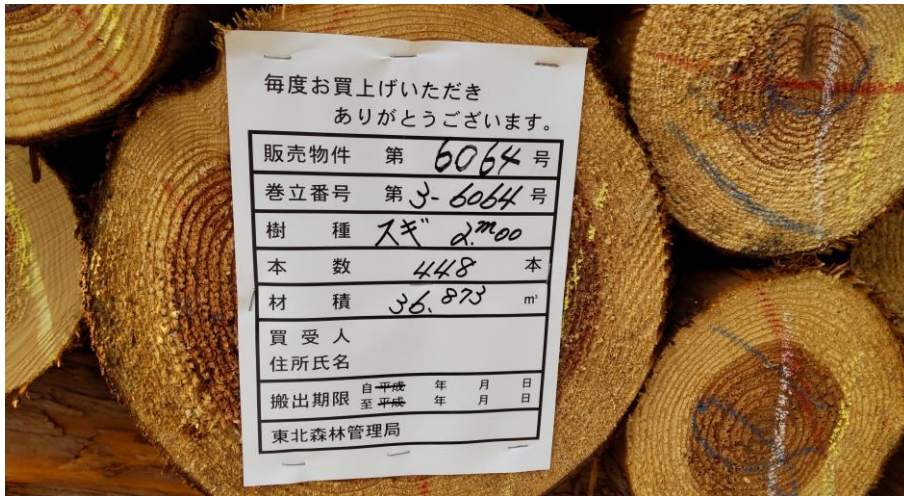 毎度お買上げいただき
ありがとうございます。
販売物件 第 6064 号
巻立番号 第 3-6064 号
樹 種 スギ 2.m00
本 数 448 本
材 積 36.873 m³
買 受 人
住所氏名
搬出期限 自 平成 年 月 日
至 平成 年 月 日
東北森林管理局